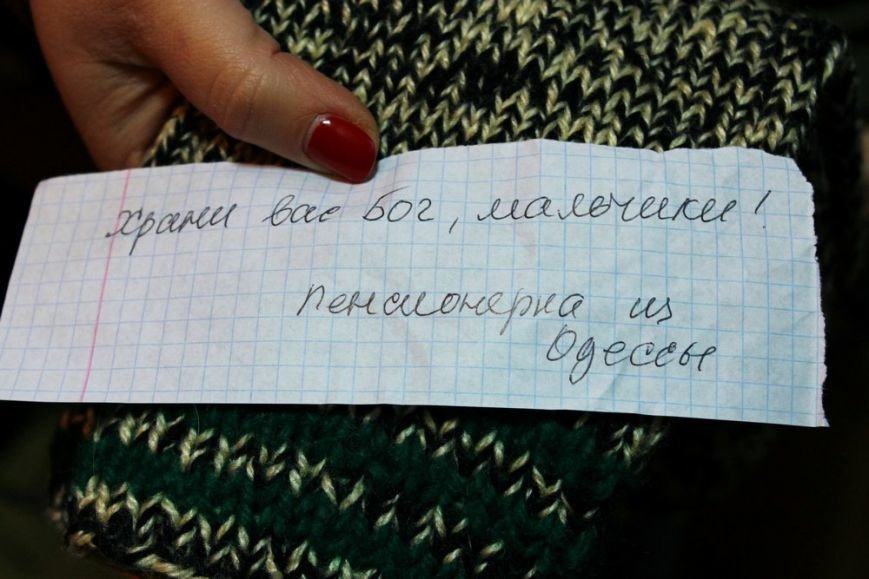 Храни вас Бог, мальчики!
Пенсионерка из
Одессы